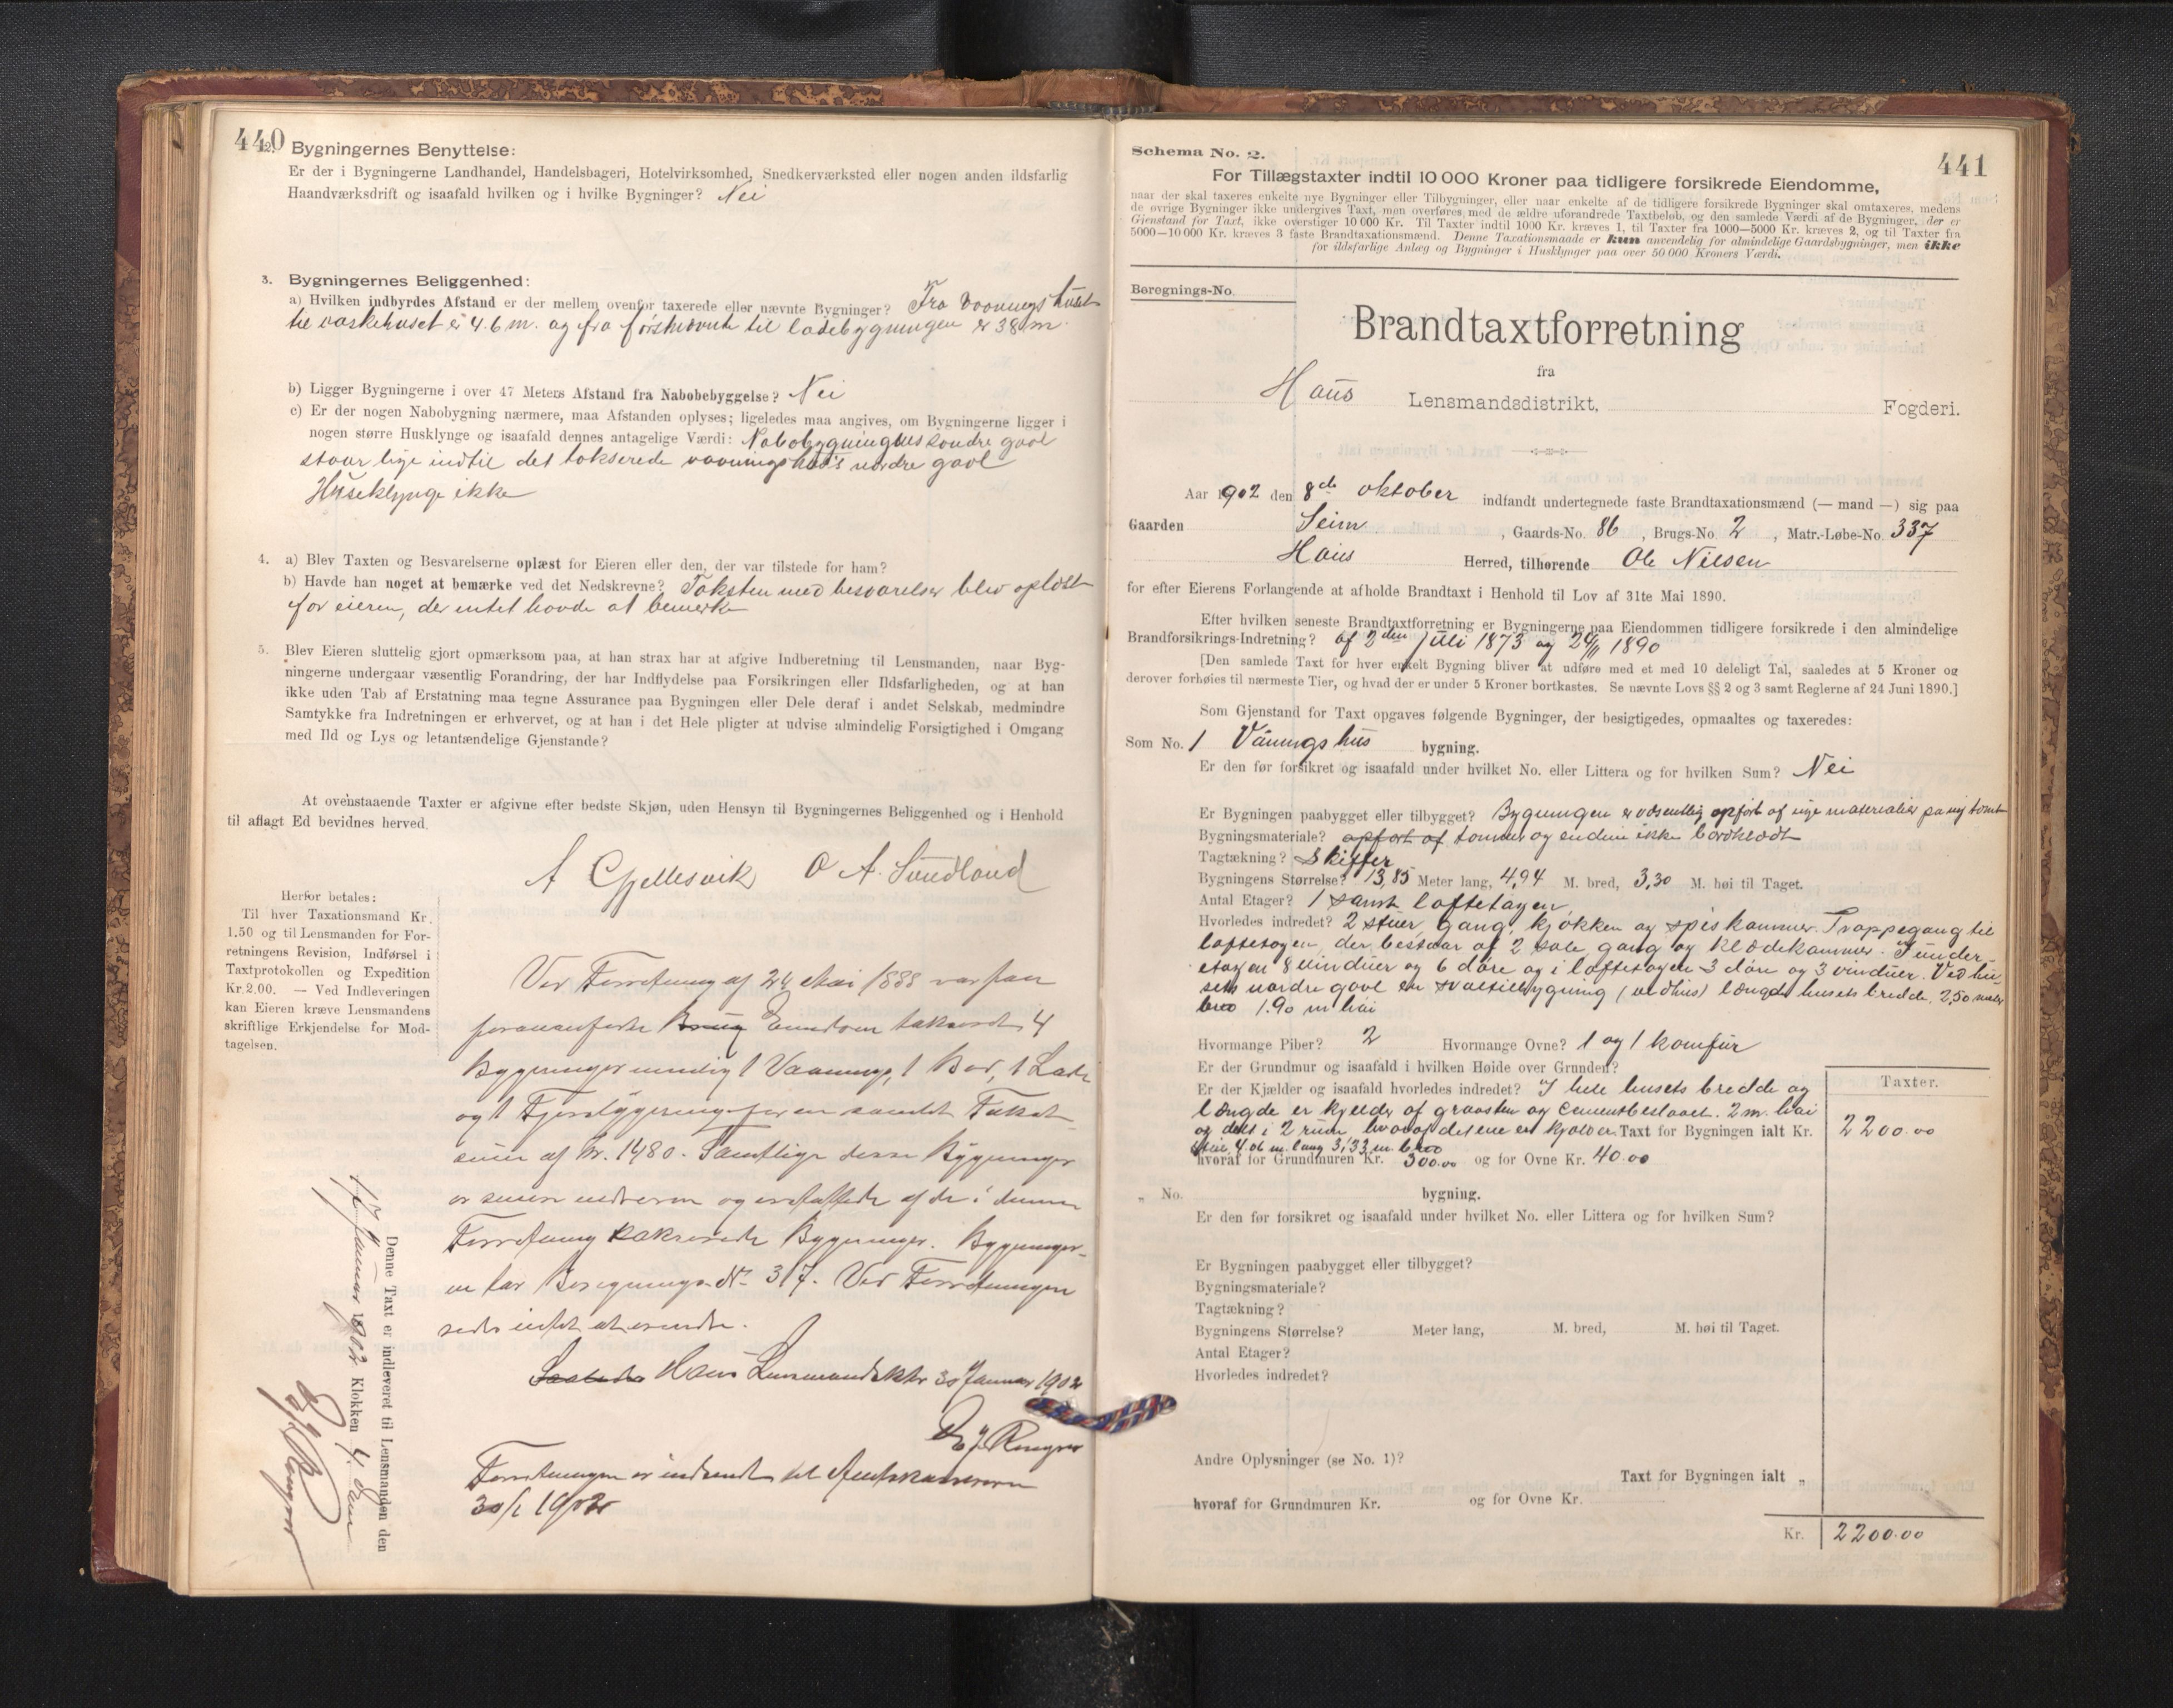 440
2. Bygningernes Benyttelse:
Er der i Bygningerne Landhandel, Handelsbageri, Hotelvirksomhed, Snedkerværksted eller nogen anden ildsfarlig
Haandværksdrift og isaafald hvilken og i hvilke Bygninger? Nei
3. Bygningernes Beliggenhed:
a) Hvilken indbyrdes Afstand er der mellem ovenfor taxerede eller nævnte Bygninger? Fra vaaningshuset
til vaskehuset er 4.6 m. og fra førstnævnte til ladebygningen er 38 m.
b) Ligger Bygningerne i over 47 Meters Afstand fra Nabobebyggelse? Nei
c) Er der nogen Nabobygning nærmere, maa Afstanden oplyses; ligeledes maa angives, om Bygningerne ligger i
nogen større Husklynge og isaafald dennes antagelige Værdi: Nabobygningens søndre gavl
staar lige indtil det takserede vaaningshus's nordre gavl
Huseklynge ikke
4. a) Blev Taxten og Besvarelserne oplæst for Eieren eller den, der var tilstede for ham?
b) Havde han noget at bemærke ved det Nedskrevne? Taksten med besvarelser blev oplæst
for eieren, der intet havde at bemerke
5. Blev Eieren sluttelig gjort opmærksom paa, at han strax har at afgive Indberetning til Lensmanden, naar Byg-
ningerne undergaar væsentlig Forandring, der har Indflydelse paa Forsikringen eller Ildsfarligheden, og at han
ikke uden Tab af Erstatning maa tegne Assurance paa Bygningen eller Dele deraf i andet Selskab, medmindre
Samtykke fra Indretningen er erhvervet, og at han i det Hele pligter at udvise almindelig Forsigtighed i Omgang
med Ild og Lys og letantændelige Gjenstande?
At ovenstaaende Taxter er afgivne efter bedste Skjøn, uden Hensyn til Bygningernes Beliggenhed og i Henhold
til aflagt Ed bevidnes herved.
A Gjellesvik O A. Sundland
Herfor betales:
Til hver Taxationsmand Kr.
1.50 og til Lensmanden for For-
retningens Revision, Indførsel i
Taxtprotokollen og Expedition
Kr. 2.00. — Ved Indleveringen
kan Eieren kræve Lensmandens
skriftlige Erkjendelse for Mod-
tagelsen.
Ved Forretning af 24 Mai 1888 var paa
forananførte Brug Eiendom takseret 4
Bygninger nemlig 1 Vaanings, 1 Bod, 1 Lade
og 1 Fjøsbygning for en samlet Takst
sum af Kr. 1480. Samtlige disse Bygninger
er senere nedrevne og erstattede af de i denne
Forretning takserede Bygninger. Bygninger-
ne har Beregnings-No 317. Ved Forretningen
sees intet at erindre.
Haus Lensmandsktr 30 Januar 1902
Forretningen er indsendt til Amtskassereren
30/1 1902
Denne Taxt er indleveret til Lensmanden den
Januar 1902 Klokken 4
441
Schema No. 2.
For Tillægstaxter indtil 10 000 Kroner paa tidligere forsikrede Eiendomme,
naar der skal taxeres enkelte nye Bygninger eller Tilbygninger, eller naar enkelte af de tidligere forsikrede Bygninger skal omtaxeres, medens
de øvrige Bygninger ikke undergives Taxt, men overføres med de ældre uforandrede Taxtbeløb, og den samlede Værdi af de Bygninger, der er
Gjenstand for Taxt, ikke overstiger 10 000 Kr. Til Taxter indtil 1000 Kr. kræves 1, til Taxter fra 1000—5000 Kr. kræves 2, og til Taxter fra
5000—10 000 Kr. kræves 3 faste Brandtaxationsmænd. Denne Taxationsmaade er kun anvendelig for almindelige Gaardsbygninger, men ikke
for ildsfarlige Anlæg og Bygninger i Husklynger paa over 50 000 Kroners Værdi.
Beregnings-No.
Brandtaxtforretning
fra
Haus Lensmandsdistrikt, Fogderi.
Aar 1902 den 8de oktober indfandt undertegnede faste Brandtaxationsmænd (— mand —) sig paa
Gaarden Seim, Gaards-No. 86, Brugs-No. 2, Matr.-Løbe-No. 337
Haus Herred, tilhørende Ole Nilsen
for efter Eierens Forlangende at afholde Brandtaxt i Henhold til Lov af 31te Mai 1890.
Efter hvilken seneste Brandtaxtforretning er Bygningerne paa Eiendommen tidligere forsikrede i den almindelige
Brandforsikrings-Indretning? af 2den juli 1873 og 24/11 1890
[Den samlede Taxt for hver enkelt Bygning bliver at udføre med et med 10 deleligt Tal, saaledes at 5 Kroner og
derover forhøies til nærmeste Tier, og hvad der er under 5 Kroner bortkastes. Se nævnte Lovs §§ 2 og 3 samt Reglerne af 24 Juni 1890.]
Som Gjenstand for Taxt opgaves følgende Bygninger, der besigtigedes, opmaaltes og taxeredes:
Som No. 1 Vånings hus bygning.
Er den før forsikret og isaafald under hvilket No. eller Littera og for hvilken Sum? Nei
Er Bygningen paabygget eller tilbygget? Bygningen er væsentlig opført af nye materialier på ny tomt
Bygningsmateriale? opført af tømmer og endnu ikke bordklædt
Tagtækning? Skiffer
Bygningens Størrelse? 13,85 Meter lang, 4,94 M. bred, 3,30 M. høi til Taget.
Antal Etager? 1 samt loftetagen
Hvorledes indredet? 2 stuer, gang, kjøkken og spiskammer. Trappegang til
loftetagen, der bestaar af 2 sale, gang og klædekammer. I under-
etagen 8 vinduer og 6 døre og i loftetagen 3 døre og 3 vinduer. Ved hu-
sets nordre gavl en svaltilbygning (vedhus) længde husets bredde, 2,50 meter
bred 1.90 m høi
Hvormange Piber? 2 Hvormange Ovne? 1 og 1 komfur
Er der Grundmur og isaafald i hvilken Høide over Grunden?
Er der Kjælder og isaafald hvorledes indredet? I hele husets bredde og Taxter.
længde er kjelder af graasten og cementbeslaaet. 2 m. høi
og delt i 2 rum hvoraf det ene er kjælder Taxt for Bygningen ialt Kr. 2200.00
stue 4,06 m. lang 3,33 m. bred
hvoraf for Grundmuren Kr. 300.00 og for Ovne Kr. 40.00
„ No. bygning.
Er den før forsikret og isaafald under hvilket No. eller Littera og for hvilken Sum?
Er Bygningen paabygget eller tilbygget?
Bygningsmateriale?
Tagtækning?
Bygningens Størrelse? Meter lang, M. bred, M. høi til Taget.
Antal Etager?
Hvorledes indredet?
Andre Oplysninger (se No. 1)?
Taxt for Bygningen ialt „
hvoraf for Grundmuren Kr. og for Ovne Kr.
Kr. 2200.00